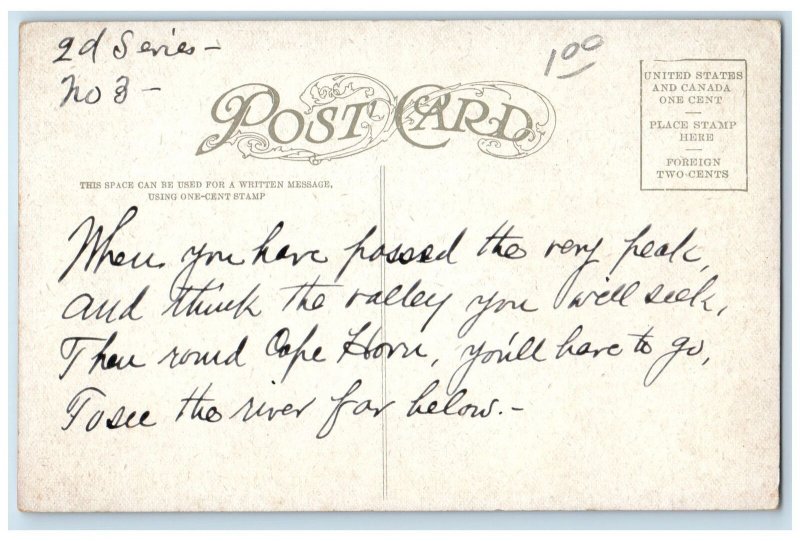 2d Series -
No 3 -
1 00
POST CARD
UNITED STATES
AND CANADA
ONE CENT
—
PLACE STAMP
HERE
—
FOREIGN
TWO-CENTS
THIS SPACE CAN BE USED FOR A WRITTEN MESSAGE,
USING ONE-CENT STAMP
When you have passed the very peak,
And think the valley you will seek,
Then round Cape Horn, you'll have to go,
To see the river far below.-